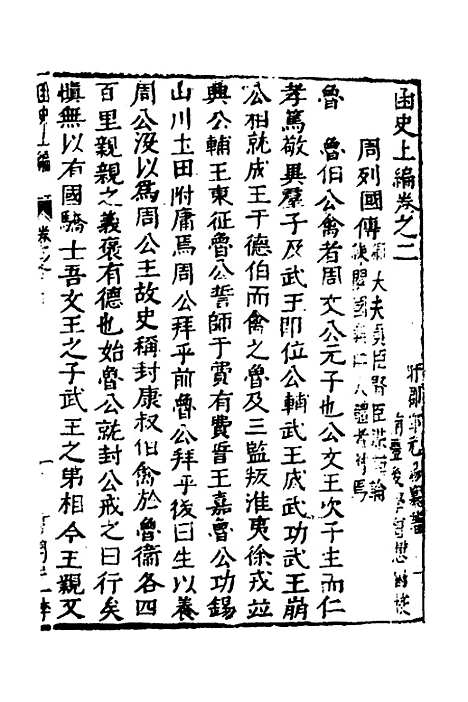 函史上編卷之二
周列國傳
大夫貞臣賢臣謀論
魯 魯伯公禽者周文公元子也公文王次子生而仁
孝篤敬異羣子及武王即位公輔武王成武功武王崩
公相就成王于德伯而禽之魯及三監叛淮夷徐戎並
興公輔王東征魯公誓師于費有費誓王嘉魯公功錫
山川土田附庸焉周公拜乎前魯公拜乎後曰生以養
周公沒以爲周公主故史稱封康叔伯禽於魯衞各四
百里親親之義褒有德也始魯公就封公戒之曰行矣
愼無以有國驕士吾文王之子武王之弟相今王親文
函史上編 卷之